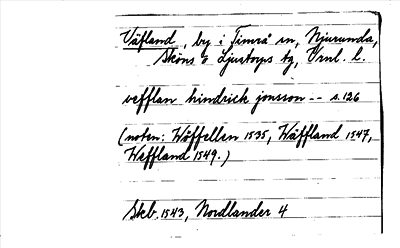 Väfland, by i Timrå sn, Njurunda,
Sköns o Ljustorps tg, Vnl. l.
vefflan hindrick jonsson -- s. 126
(noten: Wöffellen 1535, Wäffland 1547,
Weffland 1549.)
Skb. 1543, Nordlander 4